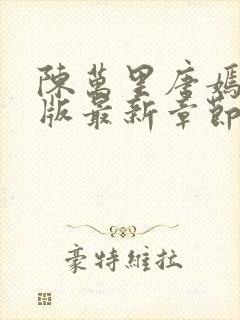 陳萬里唐嫣
版最新章節
豪特維拉